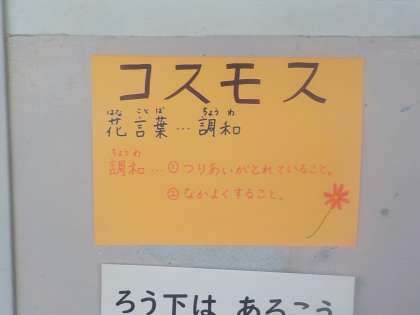 コスモス
はな ことば ちょうわ
花言葉…調和
ちょうわ
調和…①つりあいがとれていること。
②なかよくすること。
ろう下は あるこう